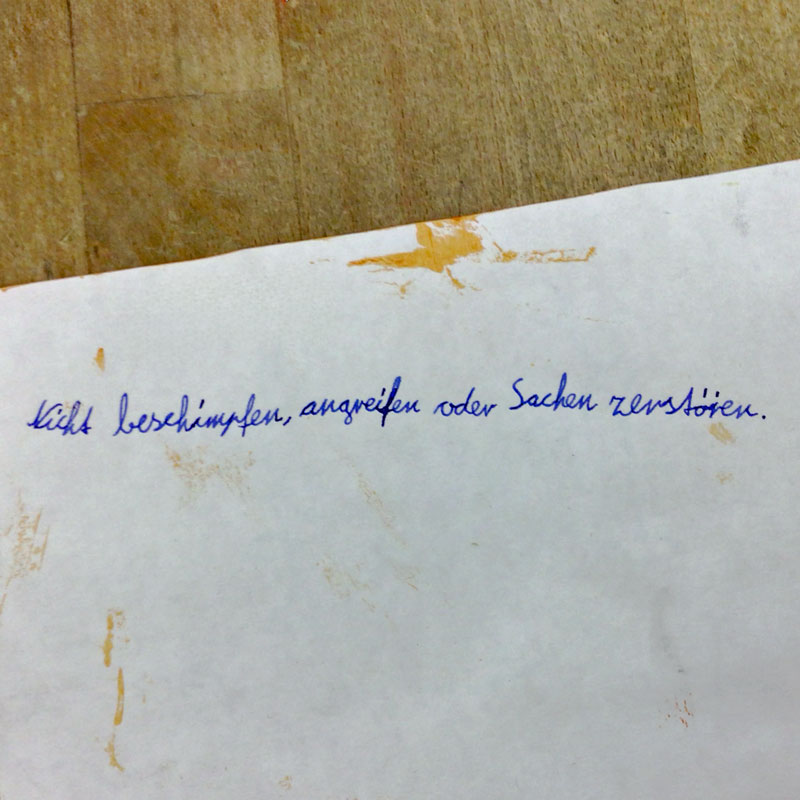 Nicht beschimpfen, angreifen oder Sachen zerstören.